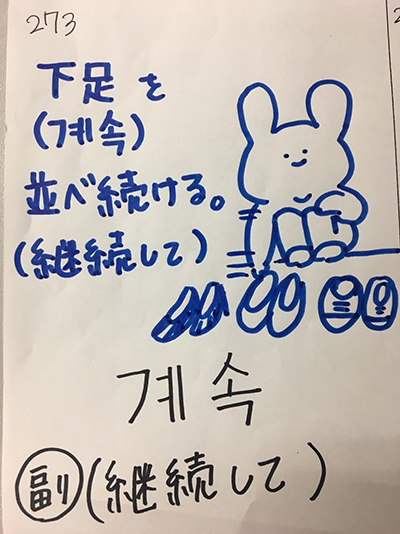 273
下足を
(계속)
並べ続ける。
(継続して)
계속
副(継続して)